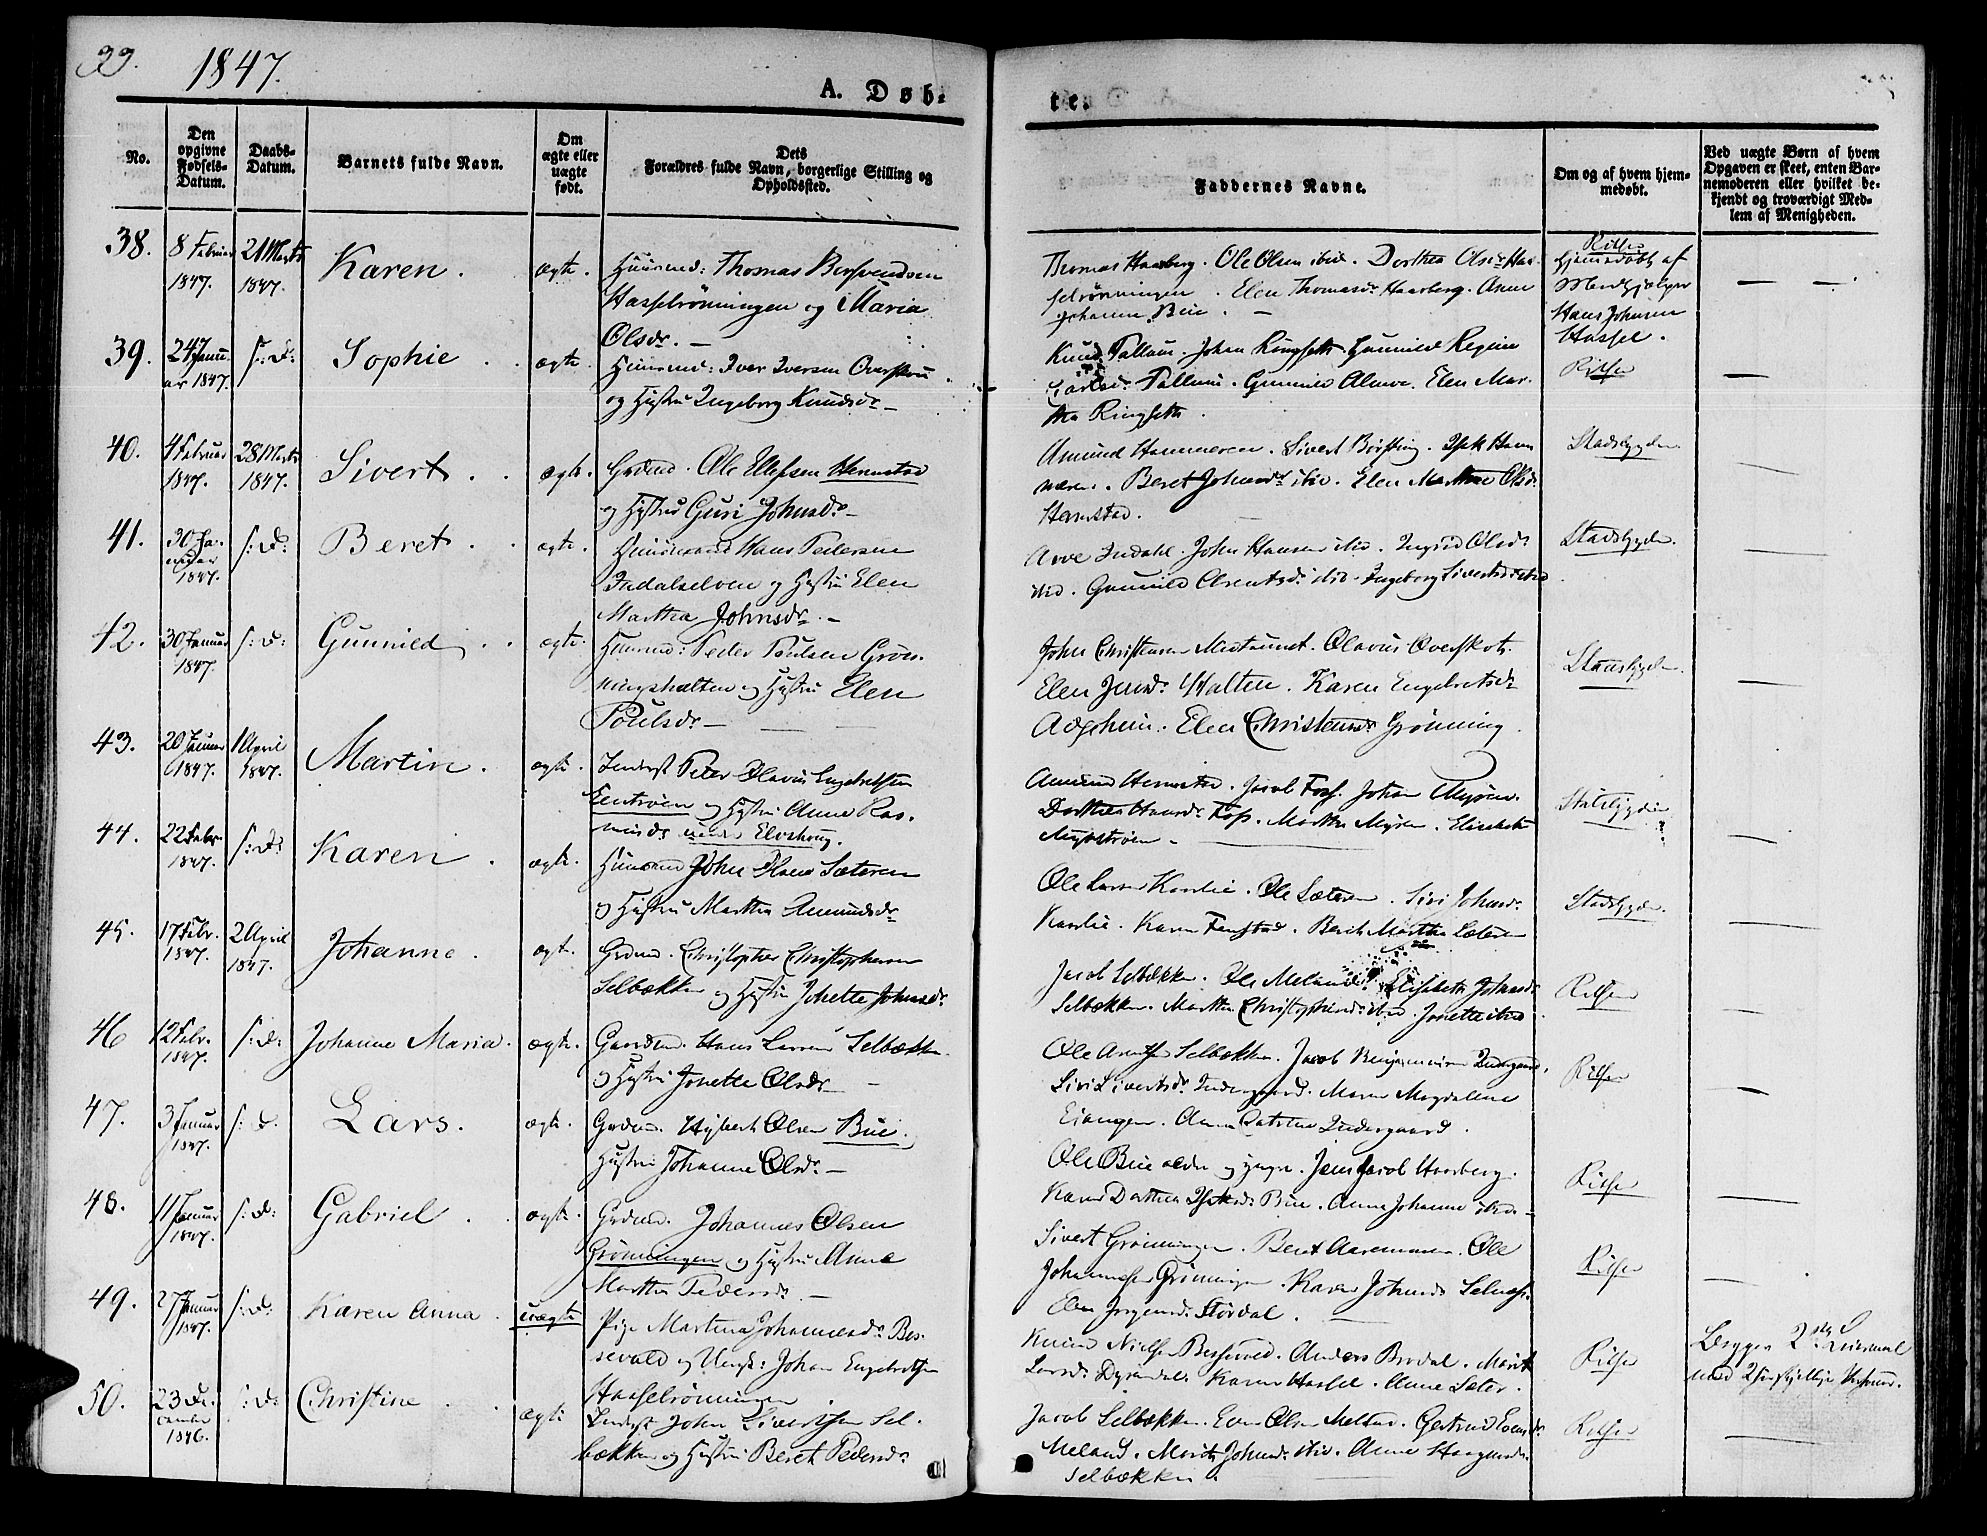 33.
1847.
A. Døb-
te.
No.
Den opgivne Fødsels-Datum.
Daabs-Datum.
Barnets fulde Navn.
Om ægte eller uægte født.
Dets Forældres fulde Navn, borgerlige Stilling og Opholdssted.
Faddernes Navne.
Om og af hvem hjem-medøbt.
Ved uægte Børn af hvem Opgaven er skeet, enten Bar-nemoderen eller hvilket be-kjendt og troværdigt Med-lem af Menigheden.
38. 8 Februar 1847. 21 Marts 1847. Karen. ægte. Huusmd: Thomas Bersvendsen
Hasselrönningen og Maria
Olsdr. —
Thomas Haarberg. Ole Olsen ibid. Dorthea Olsdr Has-
selrönningen. Elen Thomasdr Haarberg. Anne
Johanna Bue. —
Ritsen
Hjemmedøbt af
Hans Johnsen
Hassel.
39. 24 Janu-
ar 1847. s: D: Sophie. ægte. Huusmd: Iver Iversen
og Hustru Ingeborg Knudsdr —
Knud Fallum. Johan Ringseth. Gunnild Regine
Fallum. Gunnild Elen Mar-
tha Ringseth.
Ritsen
40. 4 Februar 1847. 28 Marts 1847. Sivert. ægte. Grdmd. Ole Ellefsen Hermstad
og Hustru Guri Johnsdr —
Amund Hammeren. Sivert Børsting. Ham-
meren. Beret Johnsdr ibid. Elen Marthe Olsdr
Hermstad.
Stadsbygden.
41. 30 Ja-
nuar 1847. s: D: Beret. ægte. Huusmand Hans Pedersen
Indalselven og Hustru Elen
Martha Johnsdr. —
Arve Indahl. John Hansen ibid. Ingrid Olsdr
ibid. Gunnild Arentsdr ibid. Ingeborg Sivertsdr ibid.
Stadsbygden.
42. 30 Januar 1847. s: D: Gunnild. ægte. Huusmd: Peder Poulsen Grøn-
ningshalten og Hustru Elen
Poulsdr —
John Christensen Olavus Overskott.
Elen Jensdr Halten. Karen Engebretsdr
Elen Christensdr Grønning.
Stadsbygden.
43. 20 Januar 1847. 1 April 1847. Martin. ægte. Inderst Peter Olavus Engebretsen
og Hustru Anne Ras-
musdr
Amund Hermstad. Jacob Foss. Johan Myren.
Dorthea Foss. Martha Myren. Elisabeth
Stadsbygden
44. 22 Febr. 1847. s: D: Karen. ægte. Huusmand John Olsen Sæteren
og Hustru Martha Amundsdr
Ole Larsen Karlie. Ole Sæteren. Siri Johnsdr
Karlie. Karen Fenstad. Berit Martha Sæteren
Stadsbygden.
45. 17 Febr. 1847. 2 April 1847. Johanne. ægte. Grdmd. Christopher Christophersen
Selbækken og Hustru Jonette Johnsdr
Jacob Selbækken. Ole Meland. Elisabeth Johnsdr
Selbækken. Martha Christophersdr ibid. Jonette ibid.
Ritsen
46 12 Febr. 1847. s: D: Johanne Maria. ægte. Gaardmd. Hans Larsen Selbækken
og Hustru Jonette Olsdr —
Ole Arntsen Selbækken. Jacob Benjaminsen Indergaard.
Siri Sivertsdr Indergaard. Maren Magdalena
Eiangen. Anna Indergaard.
Ritsen
47. 3 Januar 1847. s: D: Lars. ægte. Grdmd. Olsen Bue.
Hustru Johanne Olsdr —
Ole Bue ældre og yngre. Jens Jacob Haarberg.
Karen Dorthea Bue. Anna Johanne ibid. —
Ritsen
48. 11 Januar 1847. s: D: Gabriel. ægte. Grdmd. Johannes Olsen
Grönningen og Hustru Anne
Martha Pedersdr. —
Sivert Grönningen. Beret Ole
Johannesen Grönningen. Karen Johnsdr Selnæs.
Elen Jørgensdr Stördal.
Ritsen
49. 27 Januar 1847. s: D: Karen Anna. uægte Pige Martina Johannesdr Bes-
sevold og Ungk: Johan Engebretsen
Hasselrönningen
Knud Nielsen Bessevold. Anders Brodal. Marit
Larsdr Dyrendal. Karen Hassel. Anne Sæter.
Ritsen
Begges 2det Leiermaal
med 2 forskjellige
50. 23 De-
cember 1846. s: D: Christine. ægte Inderst John Sivertsen Sel-
bækken og Hustru Beret Pedersdr
Jacob Selbækken. Even Olsen Melstad. Gertrud Evensdr
Meland. Marit Johnsdr ibid. Anne Haagensdr
Selbækken.
Ritsen